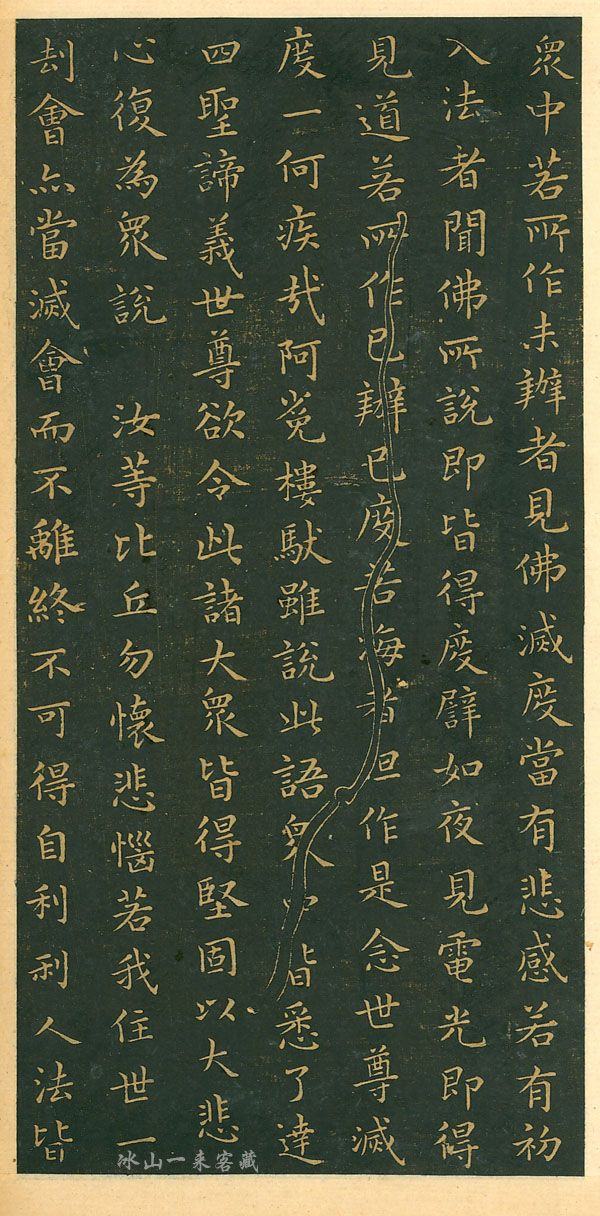 眾中若所作未辦者見佛滅度當有悲感若有初
入法者聞佛所說即皆得度譬如夜見電光即得
見道若所作已辦已度苦海者但作是念世尊滅
度一何疾哉阿㝹樓馱雖說此語眾中皆悉了達
四聖諦義世尊欲令此諸大眾皆得堅固以大悲
心復為眾說 汝等比丘勿懷悲惱若我住世一
刦會亦當滅會而不離終不可得自利利人法皆
冰山一来客藏